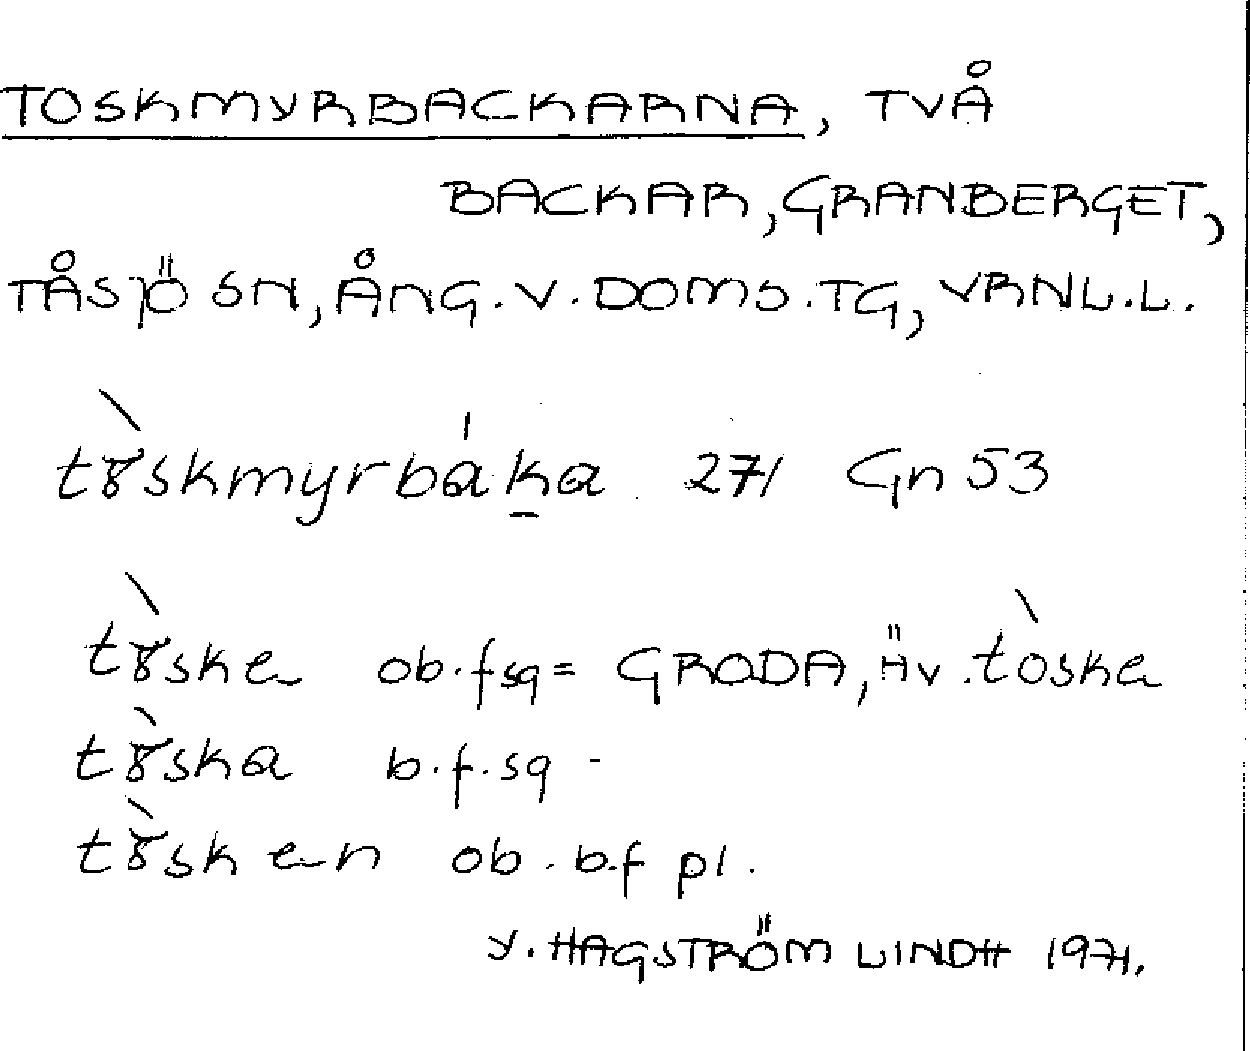 TOSKMYRBACKARNA, TVÅ
BACKAR, GRANBERGET,
TÅSJÖ SN, ÅNG. V. DOMS. TG, VRNL. L.
tɤ̀skmyrbáḵa 271 Gn 53
tɤ̀ske ob. f sg = GRODA, ÄV. tòske
tɤ̀ska b. f. sg -
tɤ̀sken ob. b.f pl.
Y. HAGSTRÖM LINDH 1971.